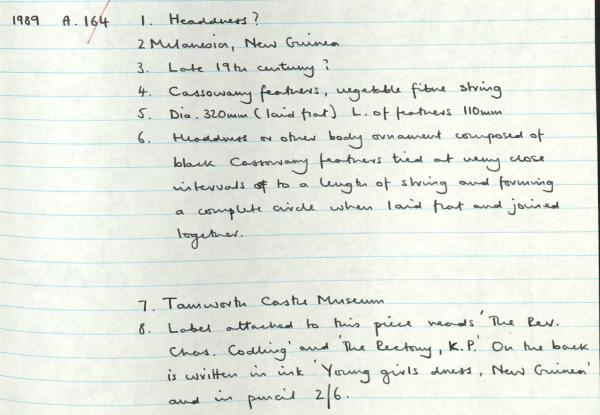 1989 A.164 1. Headdress?
2 Melanesia, New Guinea
3. Late 19th century?
4. Cassowary feathers, vegetable fibre string
5. Dia. 320mm (laid flat) L. of feathers 110mm
6. Headdress or other body ornament composed of
black Cassowary feathers tied at very close
intervals to a length of string and forming
a complete circle when laid flat and joined
together.
7. Tamworth Castle Museum
8. Label attached to this piece reads 'The Rev.
Chas. Codling' and 'The Rectory, K.P.' On the back
is written in ink 'Young girls dress, New Guinea'
and in pencil 2/6.